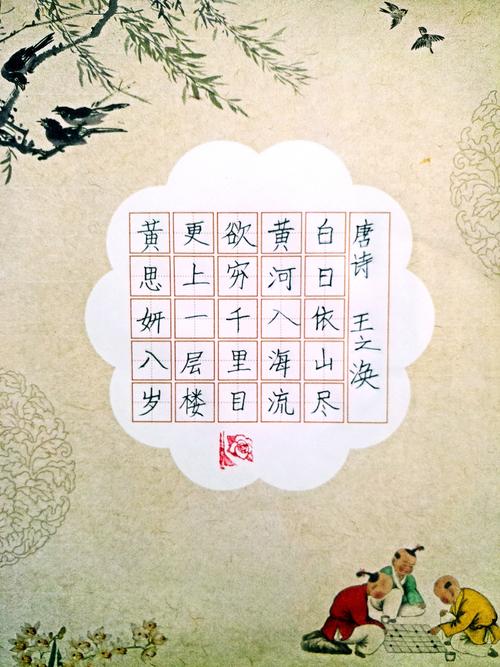 唐诗 王之涣
白日依山尽
黄河入海流
欲穷千里目
更上一层楼
黄思妍八岁